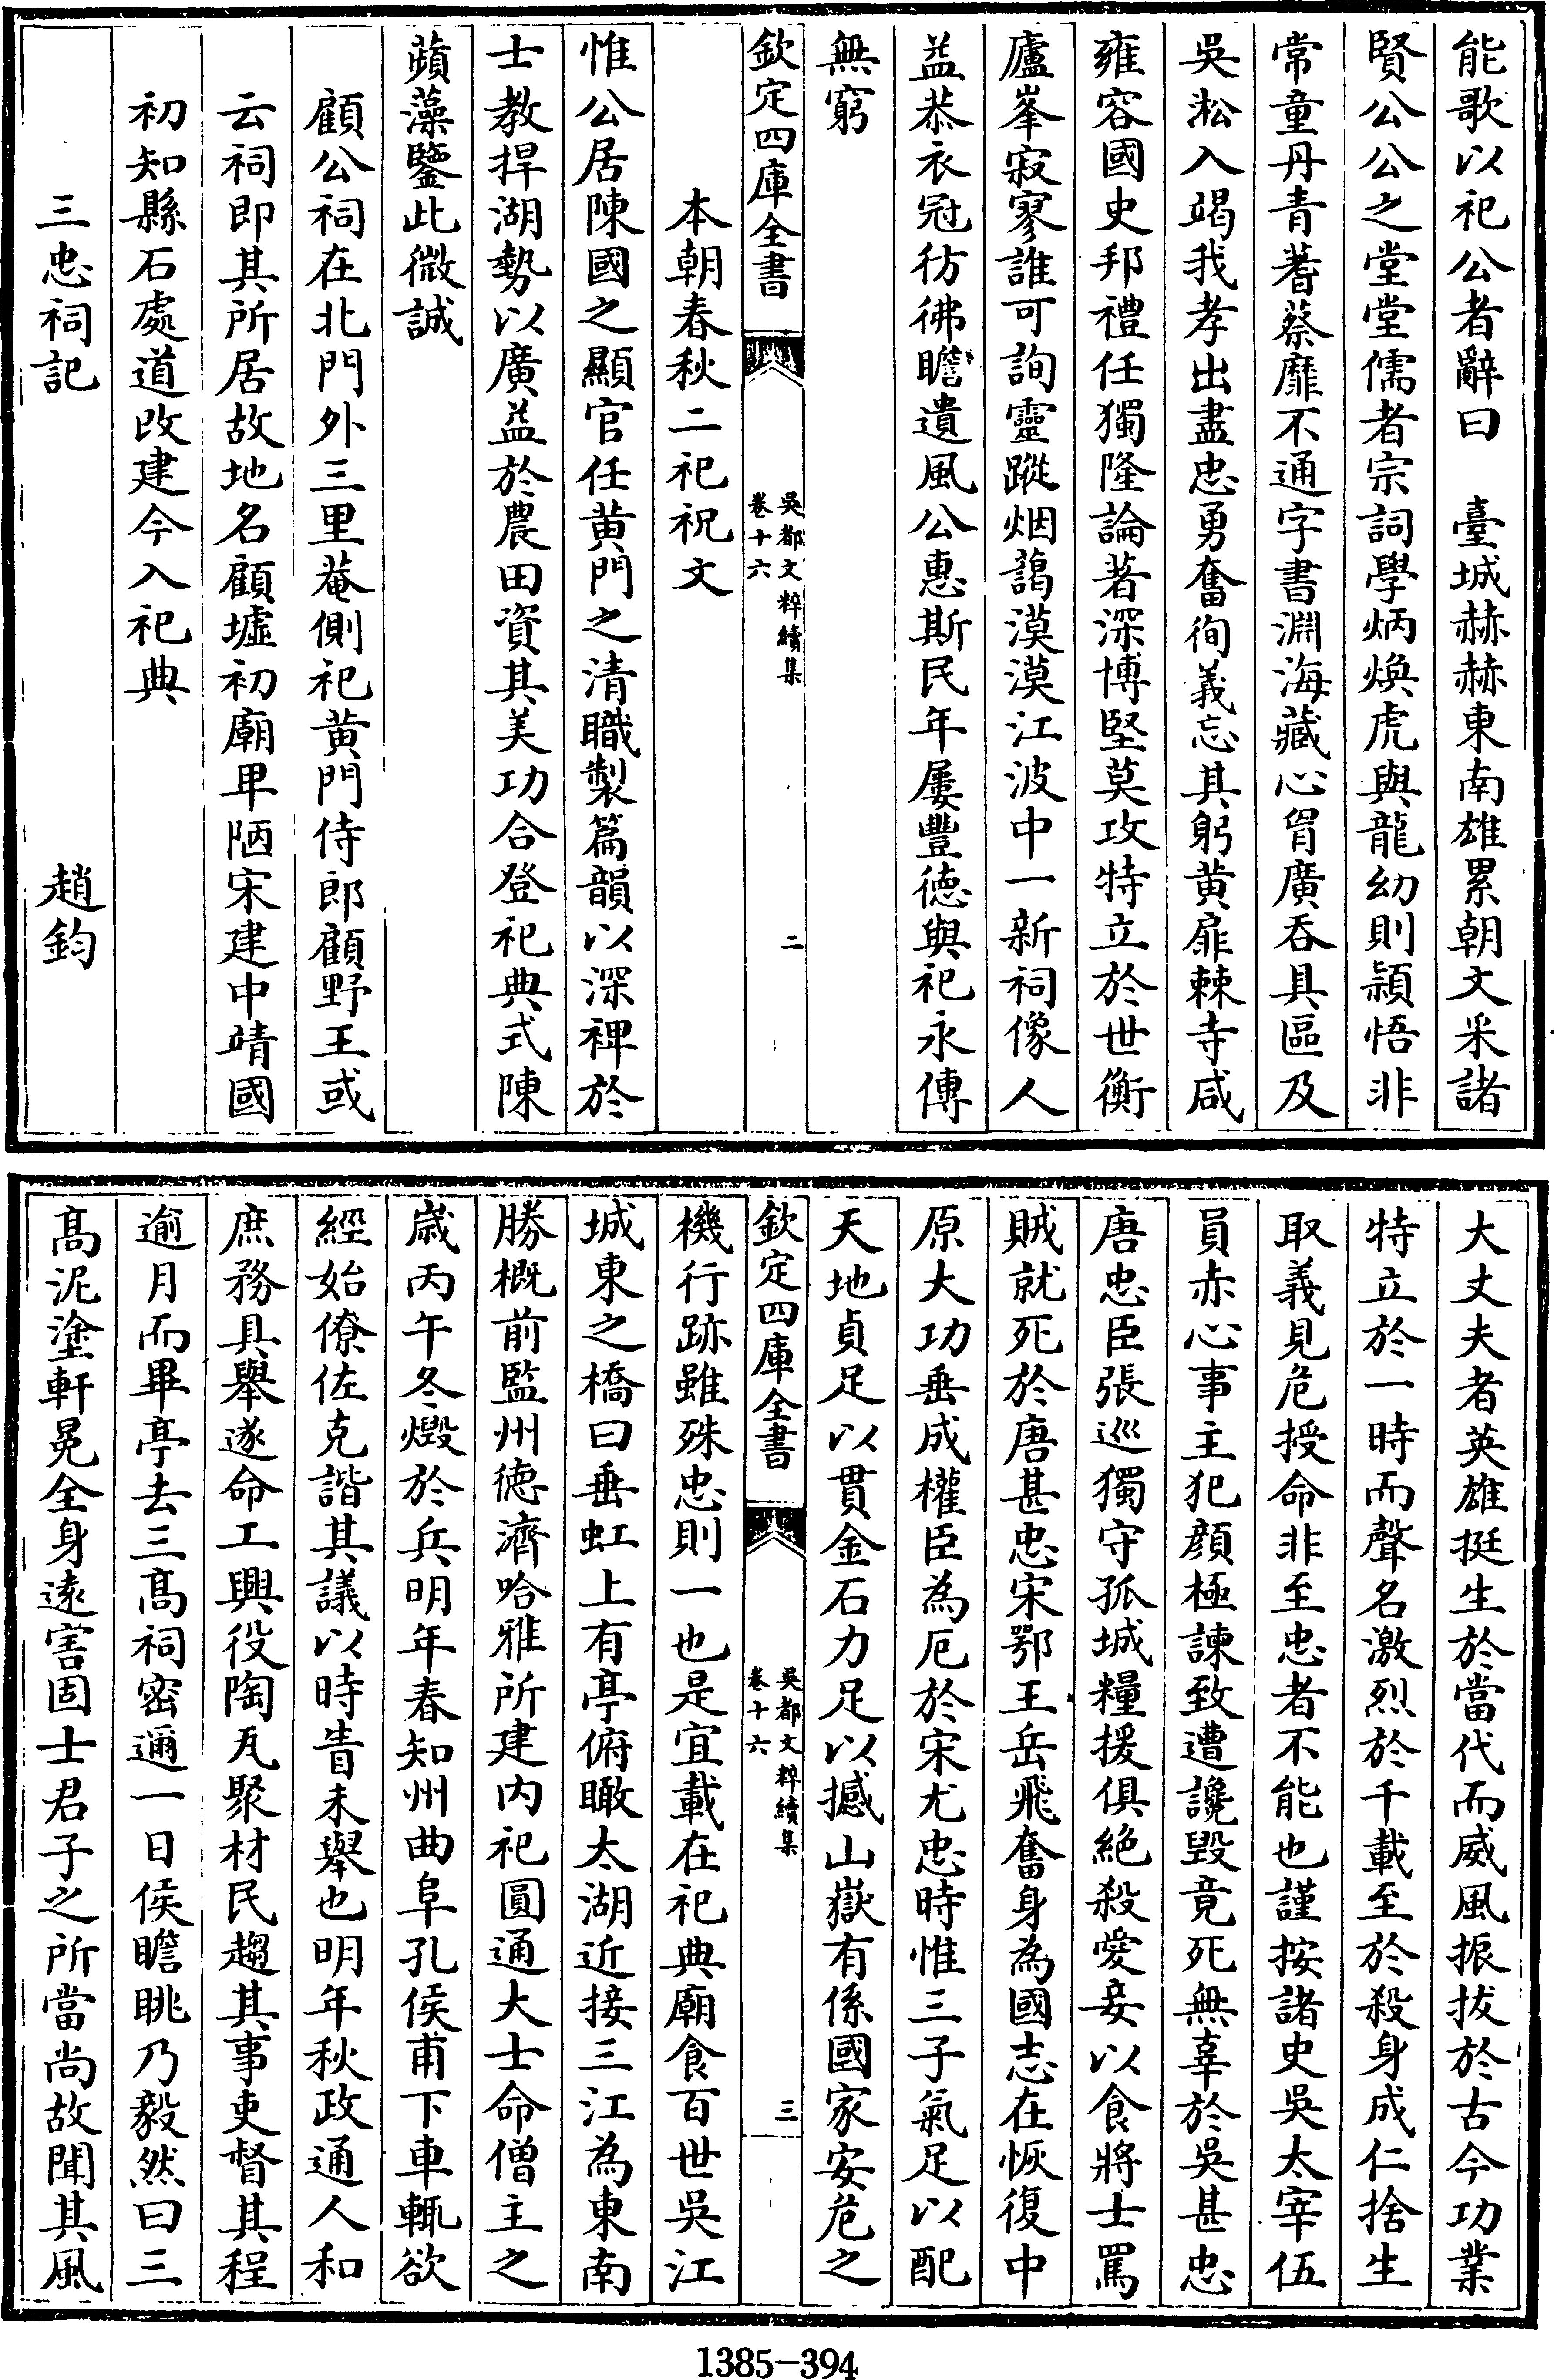 能歌以祀公者辭曰　臺城赫赫東南雄累朝文采諸
賢公公之堂堂儒者宗詞學炳煥虎與龍幼則穎悟非
常童丹青蓍蔡靡不通字書淵海藏心胷廣吞具區及
吳淞入竭我孝出盡忠勇奮徇義忘其躬黄扉棘寺咸
雍容國史邦禮任獨隆論著深博堅莫攻特立於世衡
廬峯寂寥誰可詢靈蹤烟藹漠漠江波中一新祠像人
益恭衣冠彷彿瞻遺風公惠斯民年屢豐徳與祀永傳
無窮
欽定四庫全書
吳都文粹續集
卷十六
二
本朝春秋二祀祝文
惟公居陳國之顯官任黄門之清職製篇韻以深裨於
士教捍湖勢以廣益於農田資其美功合登祀典式陳
蘋藻鑒此微誠
顧公祠在北門外三里菴側祀黄門侍郎顧野王或
云祠即其所居故地名顧墟初廟卑陋宋建中靖國
初知縣石處道改建今入祀典
三忠祠記　趙鈞
大丈夫者英雄挺生於當代而威風振拔於古今功業
特立於一時而聲名激烈於千載至於殺身成仁捨生
取義見危授命非至忠者不能也謹按諸史吳太宰伍
員赤心事主犯顔極諫致遭讒毀竟死無辜於吳甚忠
唐忠臣張巡獨守孤城糧援俱絶殺愛妾以食將士罵
賊就死於唐甚忠宋鄂王岳飛奮身為國志在恢復中
原大功垂成權臣為厄於宋尤忠時惟三子氣足以配
天地貞足以貫金石力足以撼山嶽有係國家安危之
欽定四庫全書
吳都文粹續集
卷十六
三
機行跡雖殊忠則一也是宜載在祀典廟食百世吳江
城東之橋曰垂虹上有亭俯瞰太湖近接三江為東南
勝概前監州徳濟哈雅所建内祀圓通大士命僧主之
歲丙午冬燬於兵明年春知州曲阜孔侯甫下車輒欲
經始僚佐克諧其議以時眚未舉也明年秋政通人和
庶務具舉遂命工興役陶瓦聚材民趨其事吏督其程
逾月而畢亭去三髙祠密邇一日侯瞻眺乃毅然曰三
髙泥塗軒冕全身逺害固士君子之所當尚故聞其風
1385-394